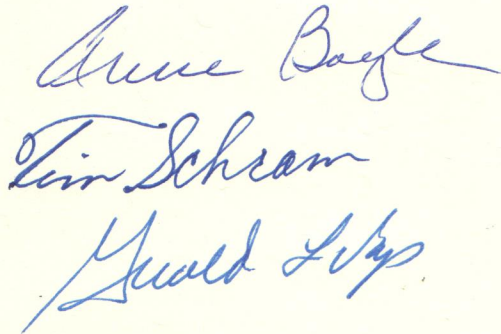 Anne Boyle
Tim Schram
Gerald L Vap